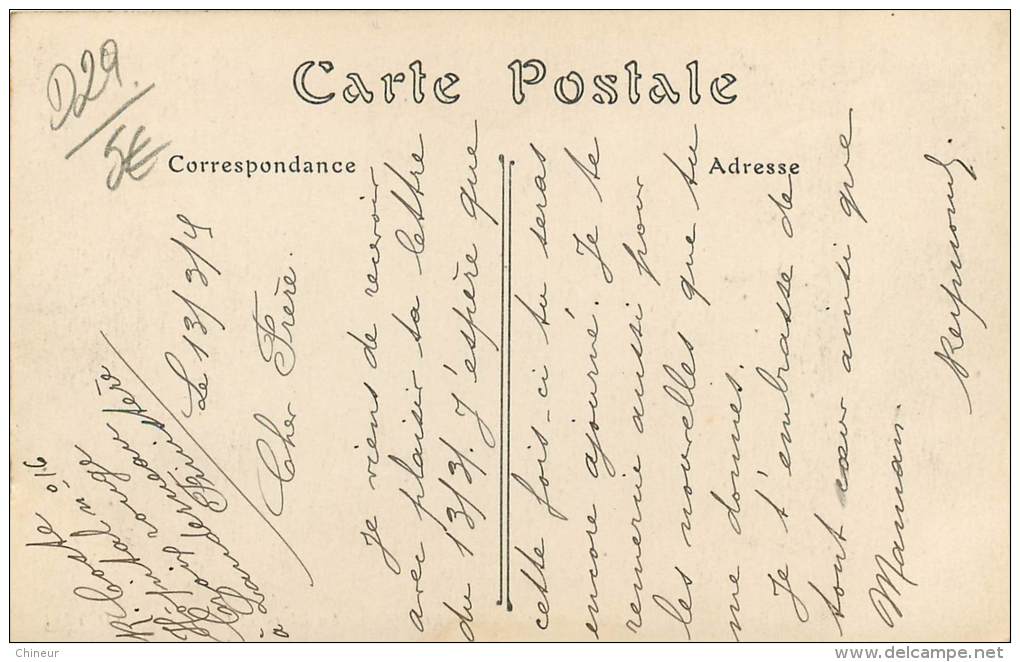 D29.
5€
Carte Postale
Correspondance
Adresse
Hôpital n°
Croix rouge
à Landerneau Finistère
Le 13/3/15
Cher Frère.
Je viens de recevoir
avec plaisir ta lettre
du 13/3/. J'espère que
cette fois-ci tu seras
encore ajourné. Je te
remercie aussi pour
les nouvelles que tu
me donnes.
Je t'embrasse de
tout cœur ainsi que
Maman
Chineur
www.delcampe.net